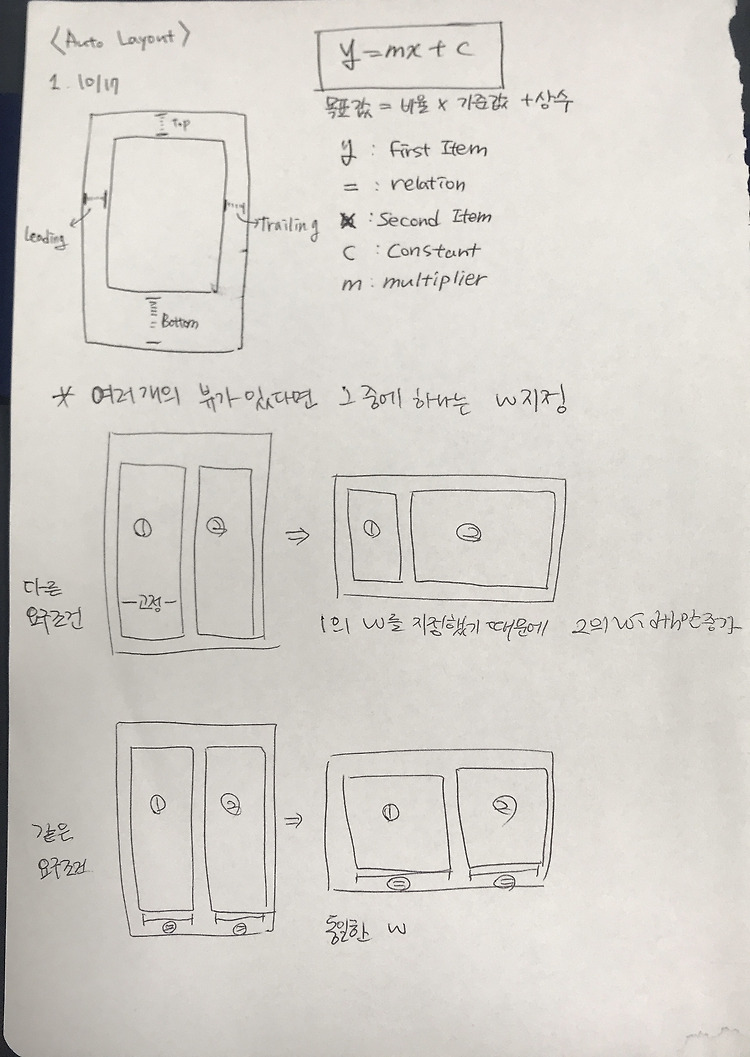 <Auto Layout>
1. 10/17
y=mx+c
목표값 = 비율 × 기준값 + 상수
y : First Item
= : relation
x : Second Item
C : Constant
m : multiplier
Top
Leading
Trailing
Bottom
* 여러개의 뷰가 있다면 그 중에 하나는 w지정
① ② ⇒ ① ②
다른
요구조건
-고정-
1의 W를 지정했기 때문에 2의 width만 증가
① ② ⇒ ① ②
같은
요구조건
= = = =
동일한 W